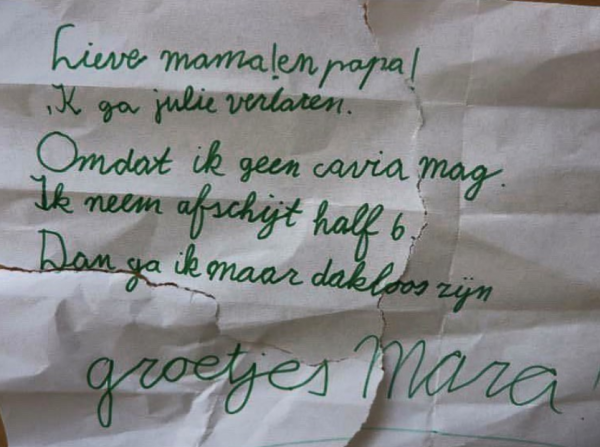 Lieve mama!en papa!
Ik ga julie verlaten.
Omdat ik geen cavia mag.
Ik neem afschijt half 6.
Dan ga ik maar dakloos zijn
groetjes Mara!